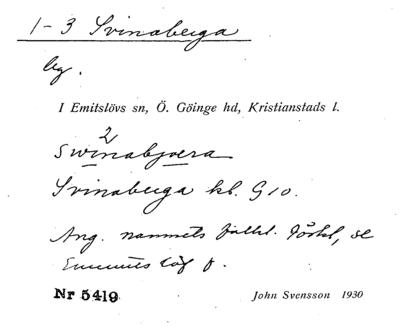 1-3 Svinaberga
by.
I Emitslövs sn, Ö. Göinge hd, Kristianstads l.
2
swinabjœra
Svinaberga kb. G 10.
Ang. namnets folkl. förkl, se
Emmits löf
Nr 5419
John Svensson 1930